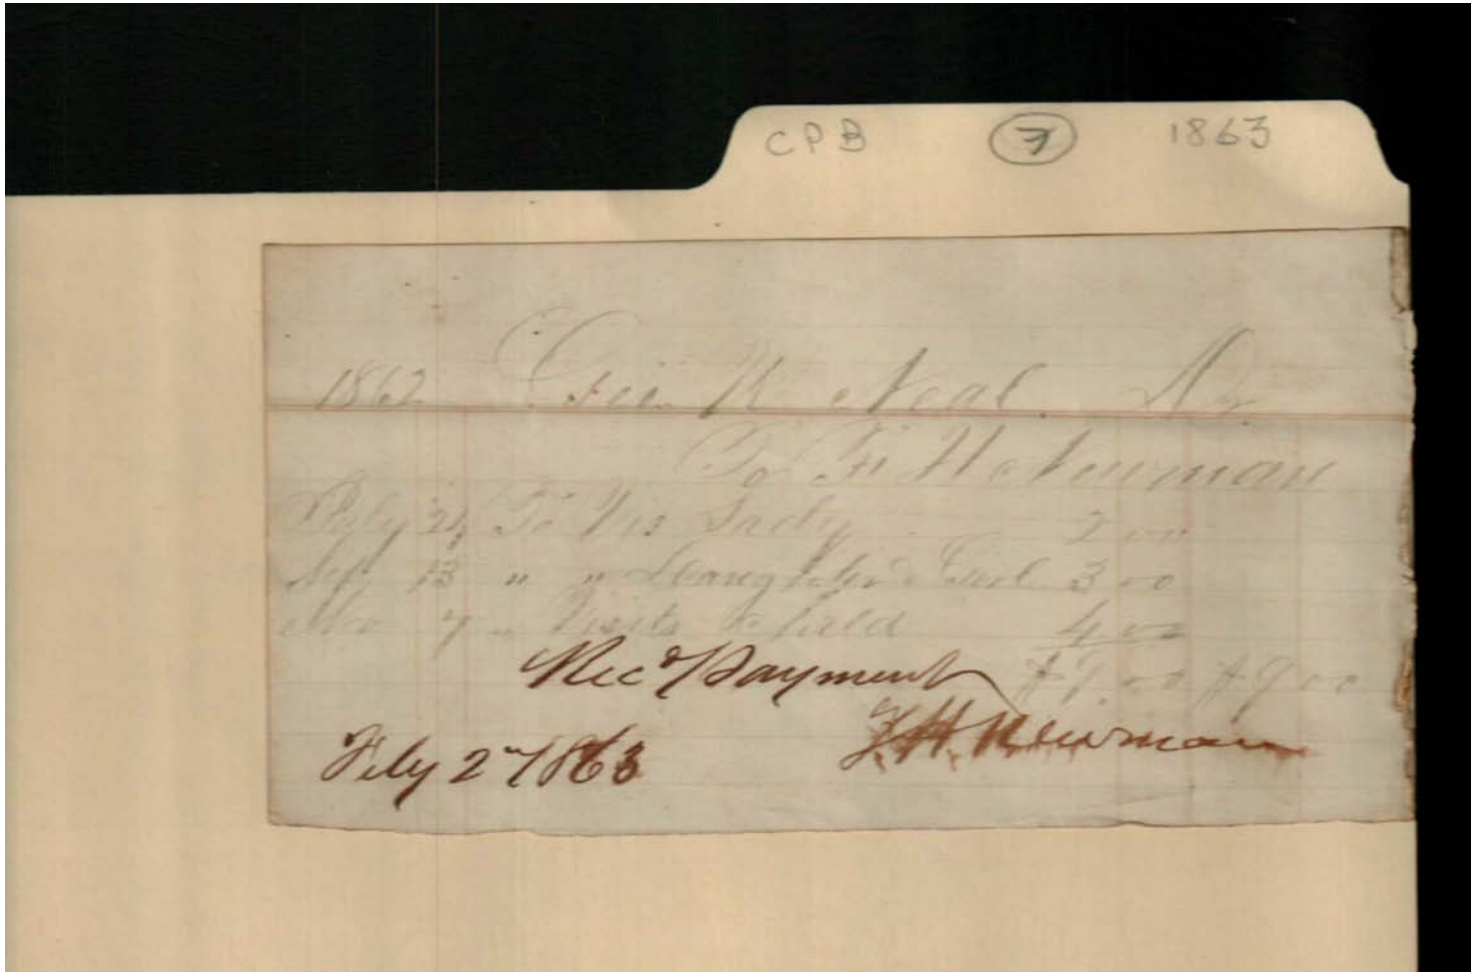 CPB 7 1863
1862 Geo. W. Neal Dr
To F. H. Newman
Feby 24 To Vis Lady 2 00
Sept 13 " " Daughter & Girl 3 00
Nov 7 " Visits to Child 4 00
Recd Payment $9.00 $9 00
F. H. Newman
Feby 2 1863